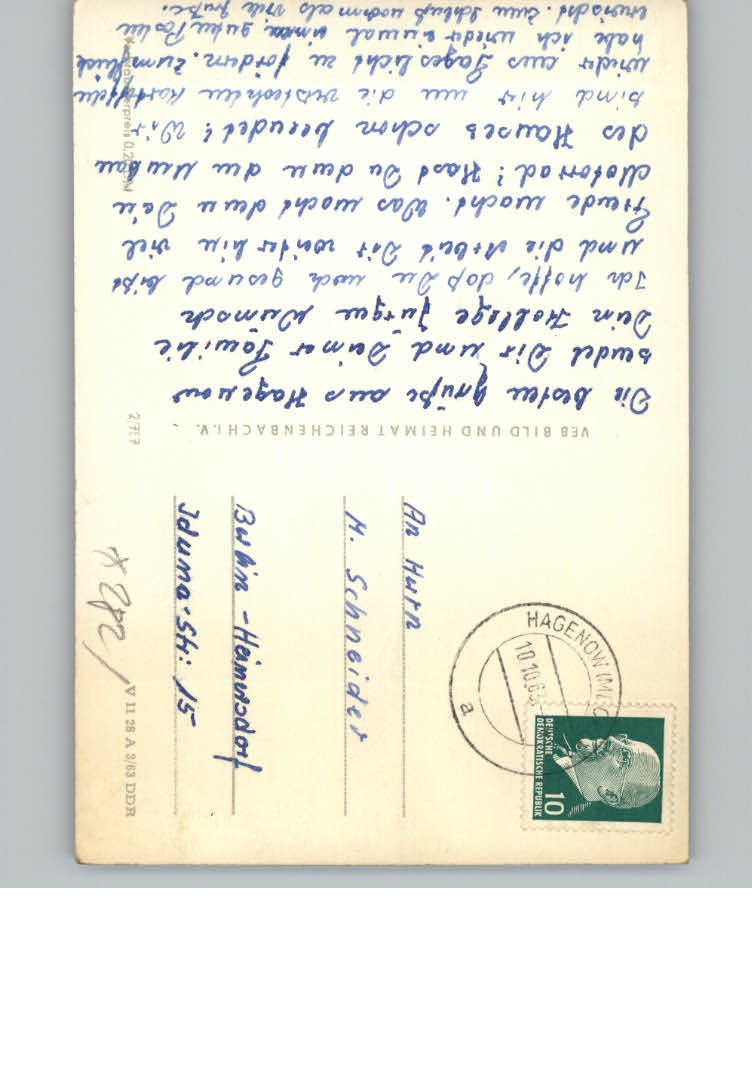 Die besten Grüße aus Hagenow
sendet Dir und Deiner Familie
Dein Kollege Jürgen Wunsch
Ich hoffe, daß Du noch gesund bist
und die Arbeit Dir weiter hin viel
Freude macht. Was macht denn Dein
Motorrad? Hast Du denn den Umbau
des Hauses schon beendet? Wir
sind hier um die versteckten Kartoffeln
wieder ans Tageslicht zu fördern. Zum Glück
habe ich wieder einmal einen guten Posten
erwischt. Zum Schluß nochmals viele Grüße.
VEB BILD UND HEIMAT REICHENBACH I. V.
2/737
Verbraucherpreis 0,20 DM
An Herrn
M. Schneider
Berlin-Heinersdorf
Iduna-Str. 15
V 11 28 A 3/63 DDR
HAGENOW (MECKL
10.10.63
a
DEUTSCHE
DEMOKRATISCHE REPUBLIK
10